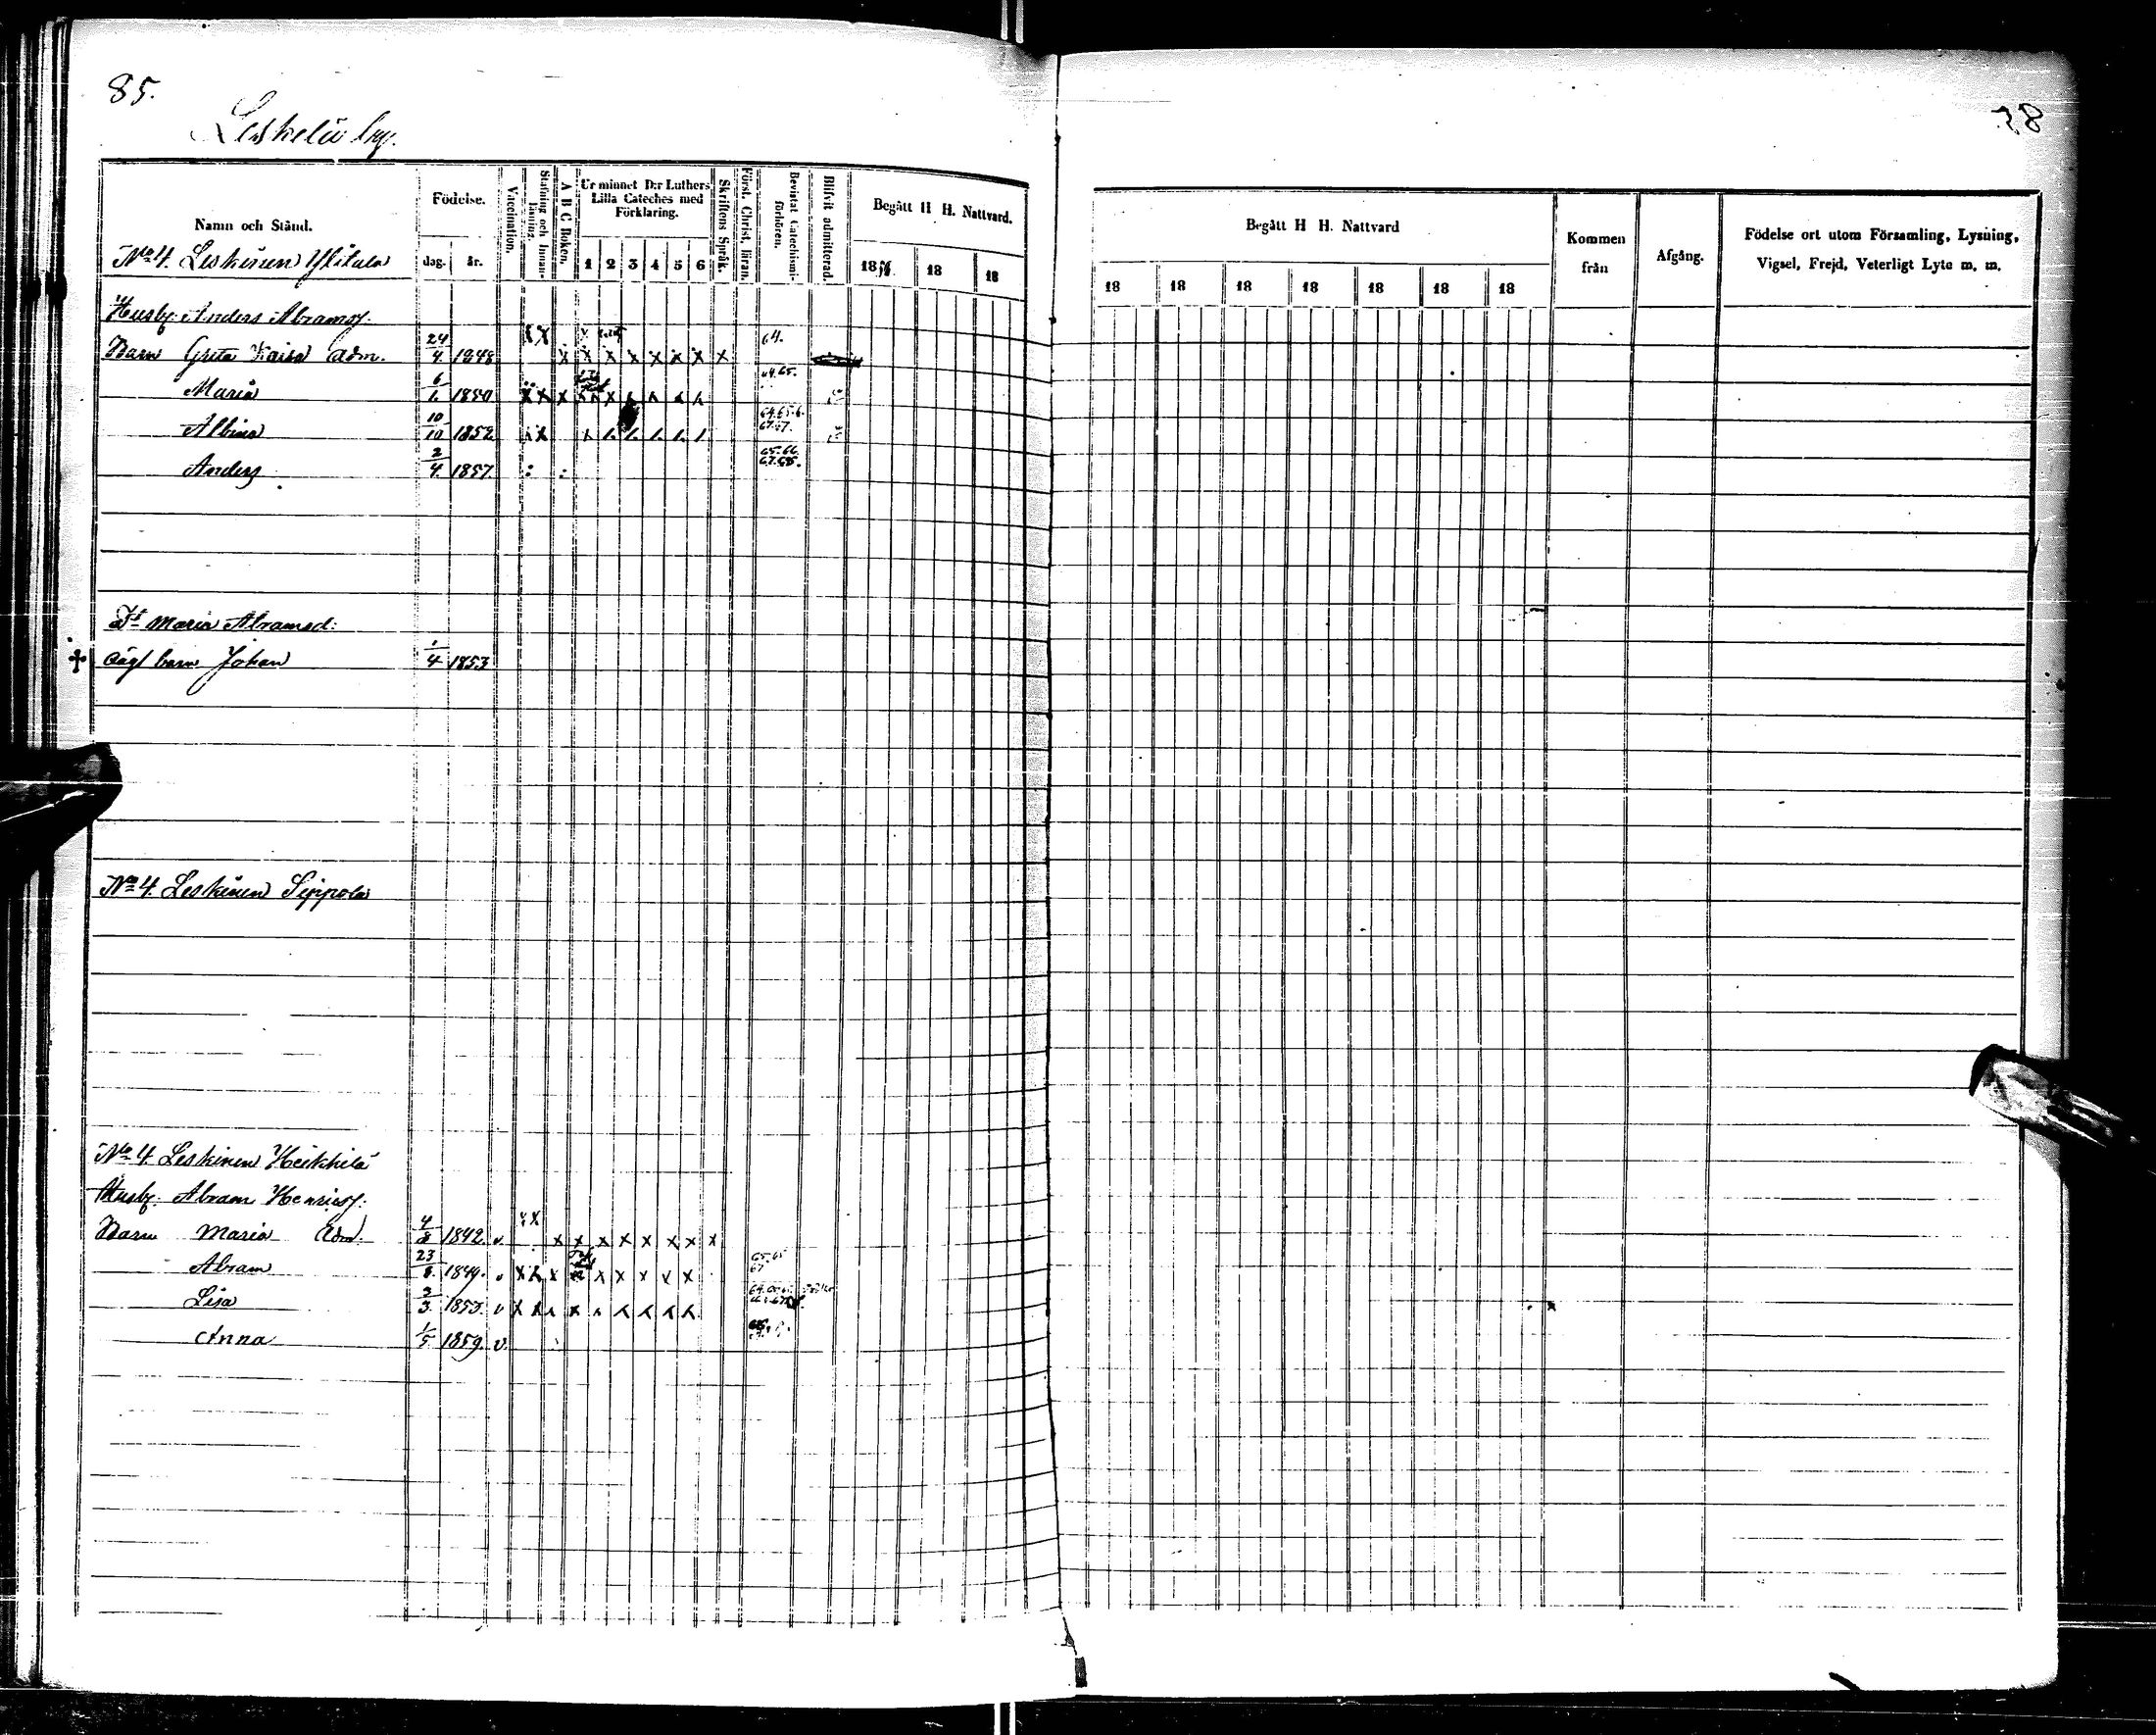 85.
Leskelä by.
28
Namn och Stånd.
Födelse.
dag. år.
Vaccination.
Stafning och Innan-läsning.
A B C Boken.
Ur minnet D:r Luthers Lilla Cateches med Förklaring.
1 2 3 4 5 6
Skriftens Språk.
Först. Christ. läran.
Bevistat Catechismi-förhören.
Blifvit admitterad.
Begått H H. Nattvard.
18 18 18
Begått H H. Nattvard
18 18 18 18 18 18 18
Kommen från
Afgång.
Födelse ort utom Församling, Lysning, Vigsel, Frejd, Veterligt Lyte m. m.
No 4. Leskinen
Husb. Anders Abramss.
Barn Greta Kaisa adm. 24/4. 1848 x x x x x x x x 64.
Maria 6/1. 1850 x x x 64.65.
Albina 10/10 1852
Anders 2/4. 1857. 65.66. 67.68.
Maria Abramsd:
barn Johan 1/4 1853
No 4. Leskinen Seppola
No 4. Leskinen Heikkilä
Husb. Abram Henricss.
Barn Maria Adm. 4/8 1842. v x x x x x x x x
Abram 23/8. 1849. v x x x x x x x x
Lisa 3/3. 1853. v x x
Anna 1/5 1859. v.